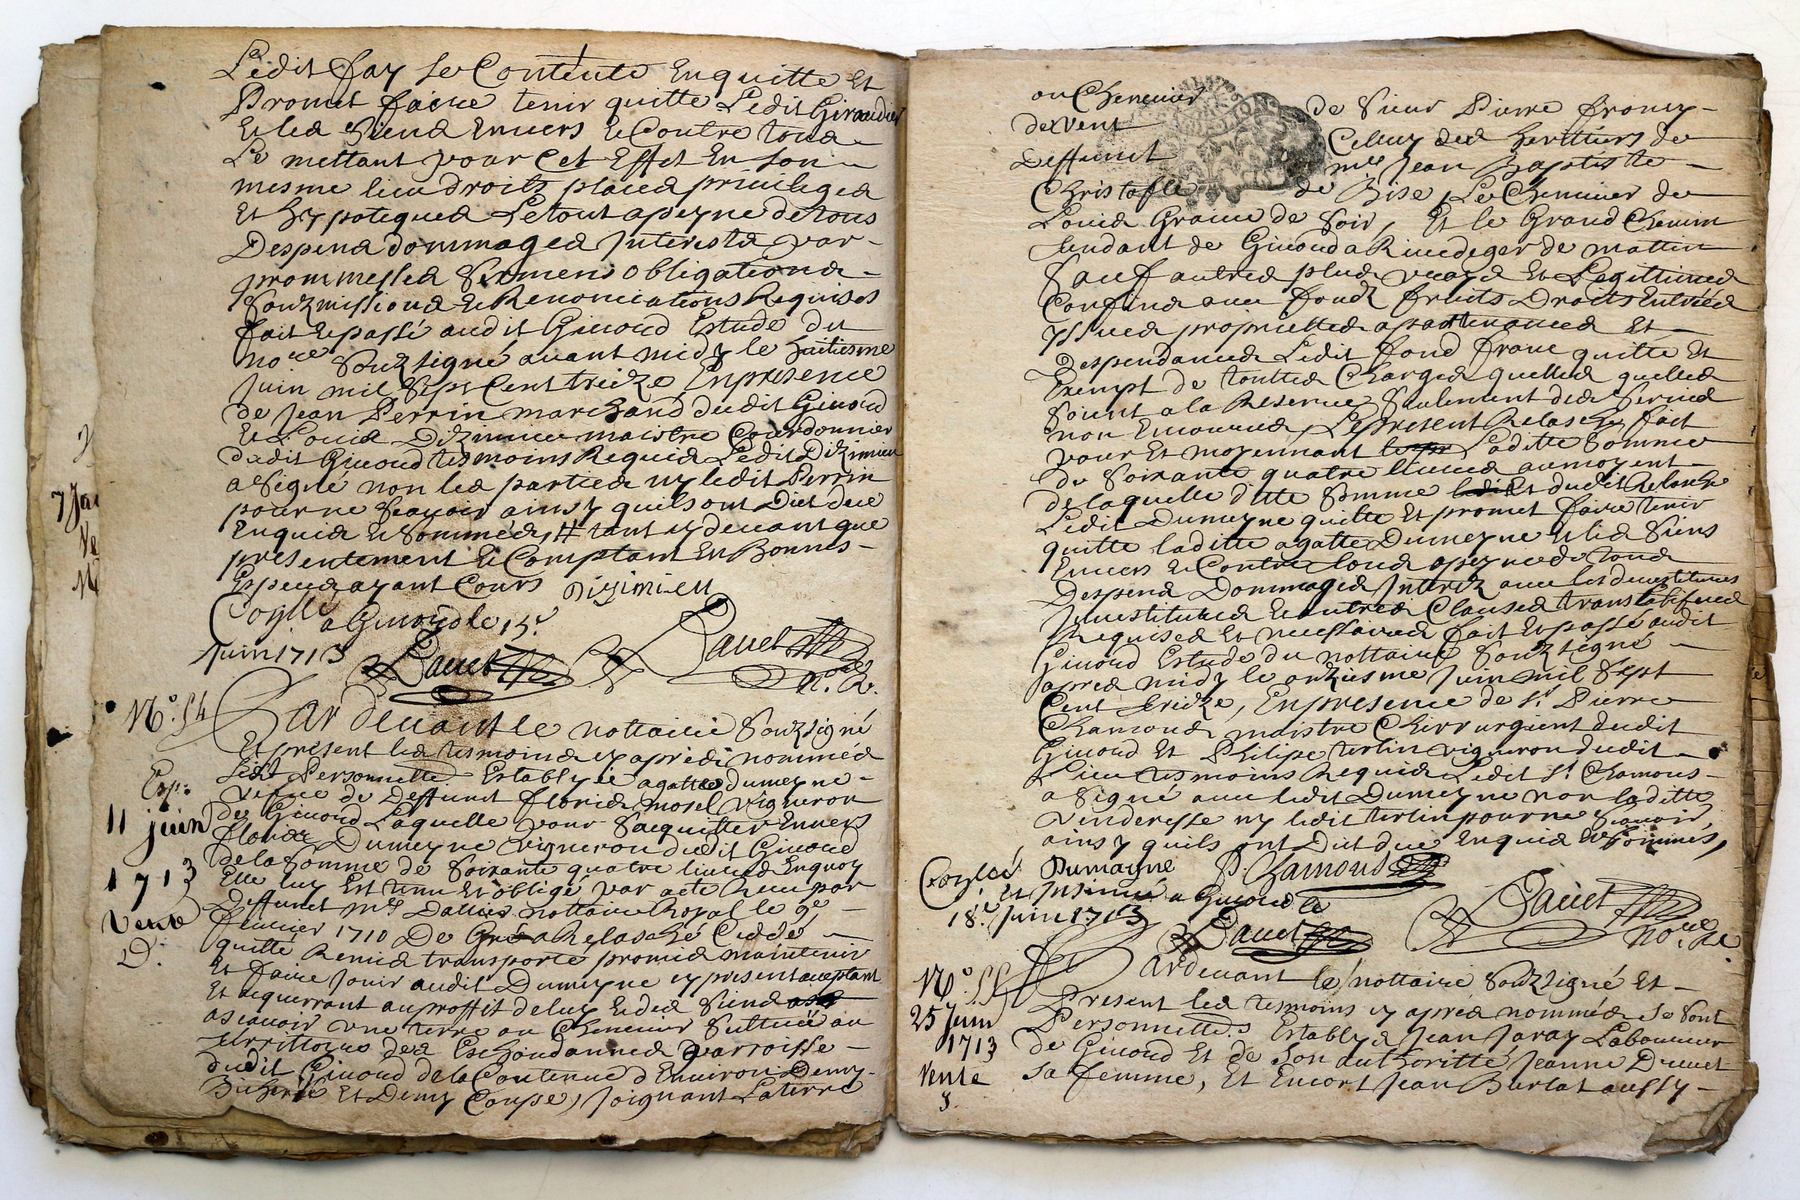 Ledit Fay se Contente Enquitte Et
Promet faire tenir quitte Ledit Giraudier
Et les siens Envers Et Contre tous
Le mettant pour Cet Effet En son
mesme lieu droits places privileges
Et hypoteques Le tout a peyne de tous
Despens dommages Interests par
prommesses sermens obligations
souzmissions Et Renonciations Requises
fait Et passé audit Givord Estude du
no.re souzsigné avant midy le huitiesme
Juin mil sept Cent treize Enpresence
de Jean Perrin marchand dudit Givord
Et Louis Dizimieu maistre Courdonnier
dudit Givord tesmoins Requis Ledit Dizimieu
a signé non les parties ny ledit Perrin
pour ne scavoir ainsy quils ont Dict due
Enquis Et sommés, # tant cy devant que
presentement Et Comptant En Bonnes
Especes ayant Cours Dizimieu
Coṅllé a Givord le 15.e
Juin 1713
N.o 54 Par devant le nottaire souzsigné
Et present les tesmoins cy apres nommés
sest Personnelle Establye agatte Dumeyne
Exp.
vefve de Deffunt Floris morel vigneron
11 juin
de Givord Laquelle pour sacquitter Envers
Floris Dumeyne vigneron dudit Givord
1713
de la somme de soixante quatre livres Enquoy
Elle luy Est tenu Et obligé par acte Receu par
Vente
Deffunt m.e Dallier nottaire Royal le 9.e
D.
fevrier 1710 De Gré a Relasché Ceddé
quitté Remis transporté promis maintenir
Et faire Jouir audit Dumeyne cy present acceptant
Et acquerrant au proffit de luy Et des siens
ascavoir une terre ou Chenevier scittuée au
territoire des Eschondannes parroisse
dudit Givord de la Contenue d'Environ Demy
Bicheree Et Demy Coupe, Joignant La terre
ou Chenevier de sieur Pierre
de vent Celluy des herittiers de
Deffunt m.re Jean Baptiste
Christofle de Bise, Le Chenevier de
Louis de soir, Et le Grand Chemin
tendant de Givord a Rivedegier de mattin
sauf autres plus vrays Et Legittimes
Confins avec fondz fruits Droits Entrées
yssues proprietes apartenances Et
Despendances Ledit fond franc quitte Et
Exempt de touttes Charges quelles quelles
soient a la Reserve seulement des servis
non Encourus, Le present Relasche fait
pour Et moyennant Laditte somme
de soixante quatre livres au moyent
de laquelle ditte somme Et dudit Relasche
Ledit Dumeyne quitte Et promet faire tenir
quitte laditte agatte Dumeyne Et les siens
Envers Et Contre tous a peyne de tous
Despens Dommages Interetz avec les devestitures
Investitures Et autres Clauses translatifves
Requises Et necessaires fait Et passé audit
Givord Estude du nottaire souzsigné
apres midy le onziesme Juin mil sept
Cent treize, Enpresence de s.r Pierre
Chamous maistre Chirurgient dudit
Givord Et Philipe terlin vigneron dudit
Lieu tesmoins Requis Ledit s.r Chamous
a signé avec ledit Dumeyne non laditte
venderesse ny ledit terlin pour ne scavoir
ainsy quils ont Dict due Enquis Et sommés,
Dumayne P. Chamoud
Et Insinué a Givord le
18.e Juin 1713
N.o 55 Pardevant le nottaire souzsigné Et
25 Juin
Present les tesmoins cy apres nommés se sont
1713
Personnelle.s Establys Jean Jaray Laboureur
de Givord Et de son authoritté Jeanne
Vente
sa femme, Et Encort Jean Burlat aussy